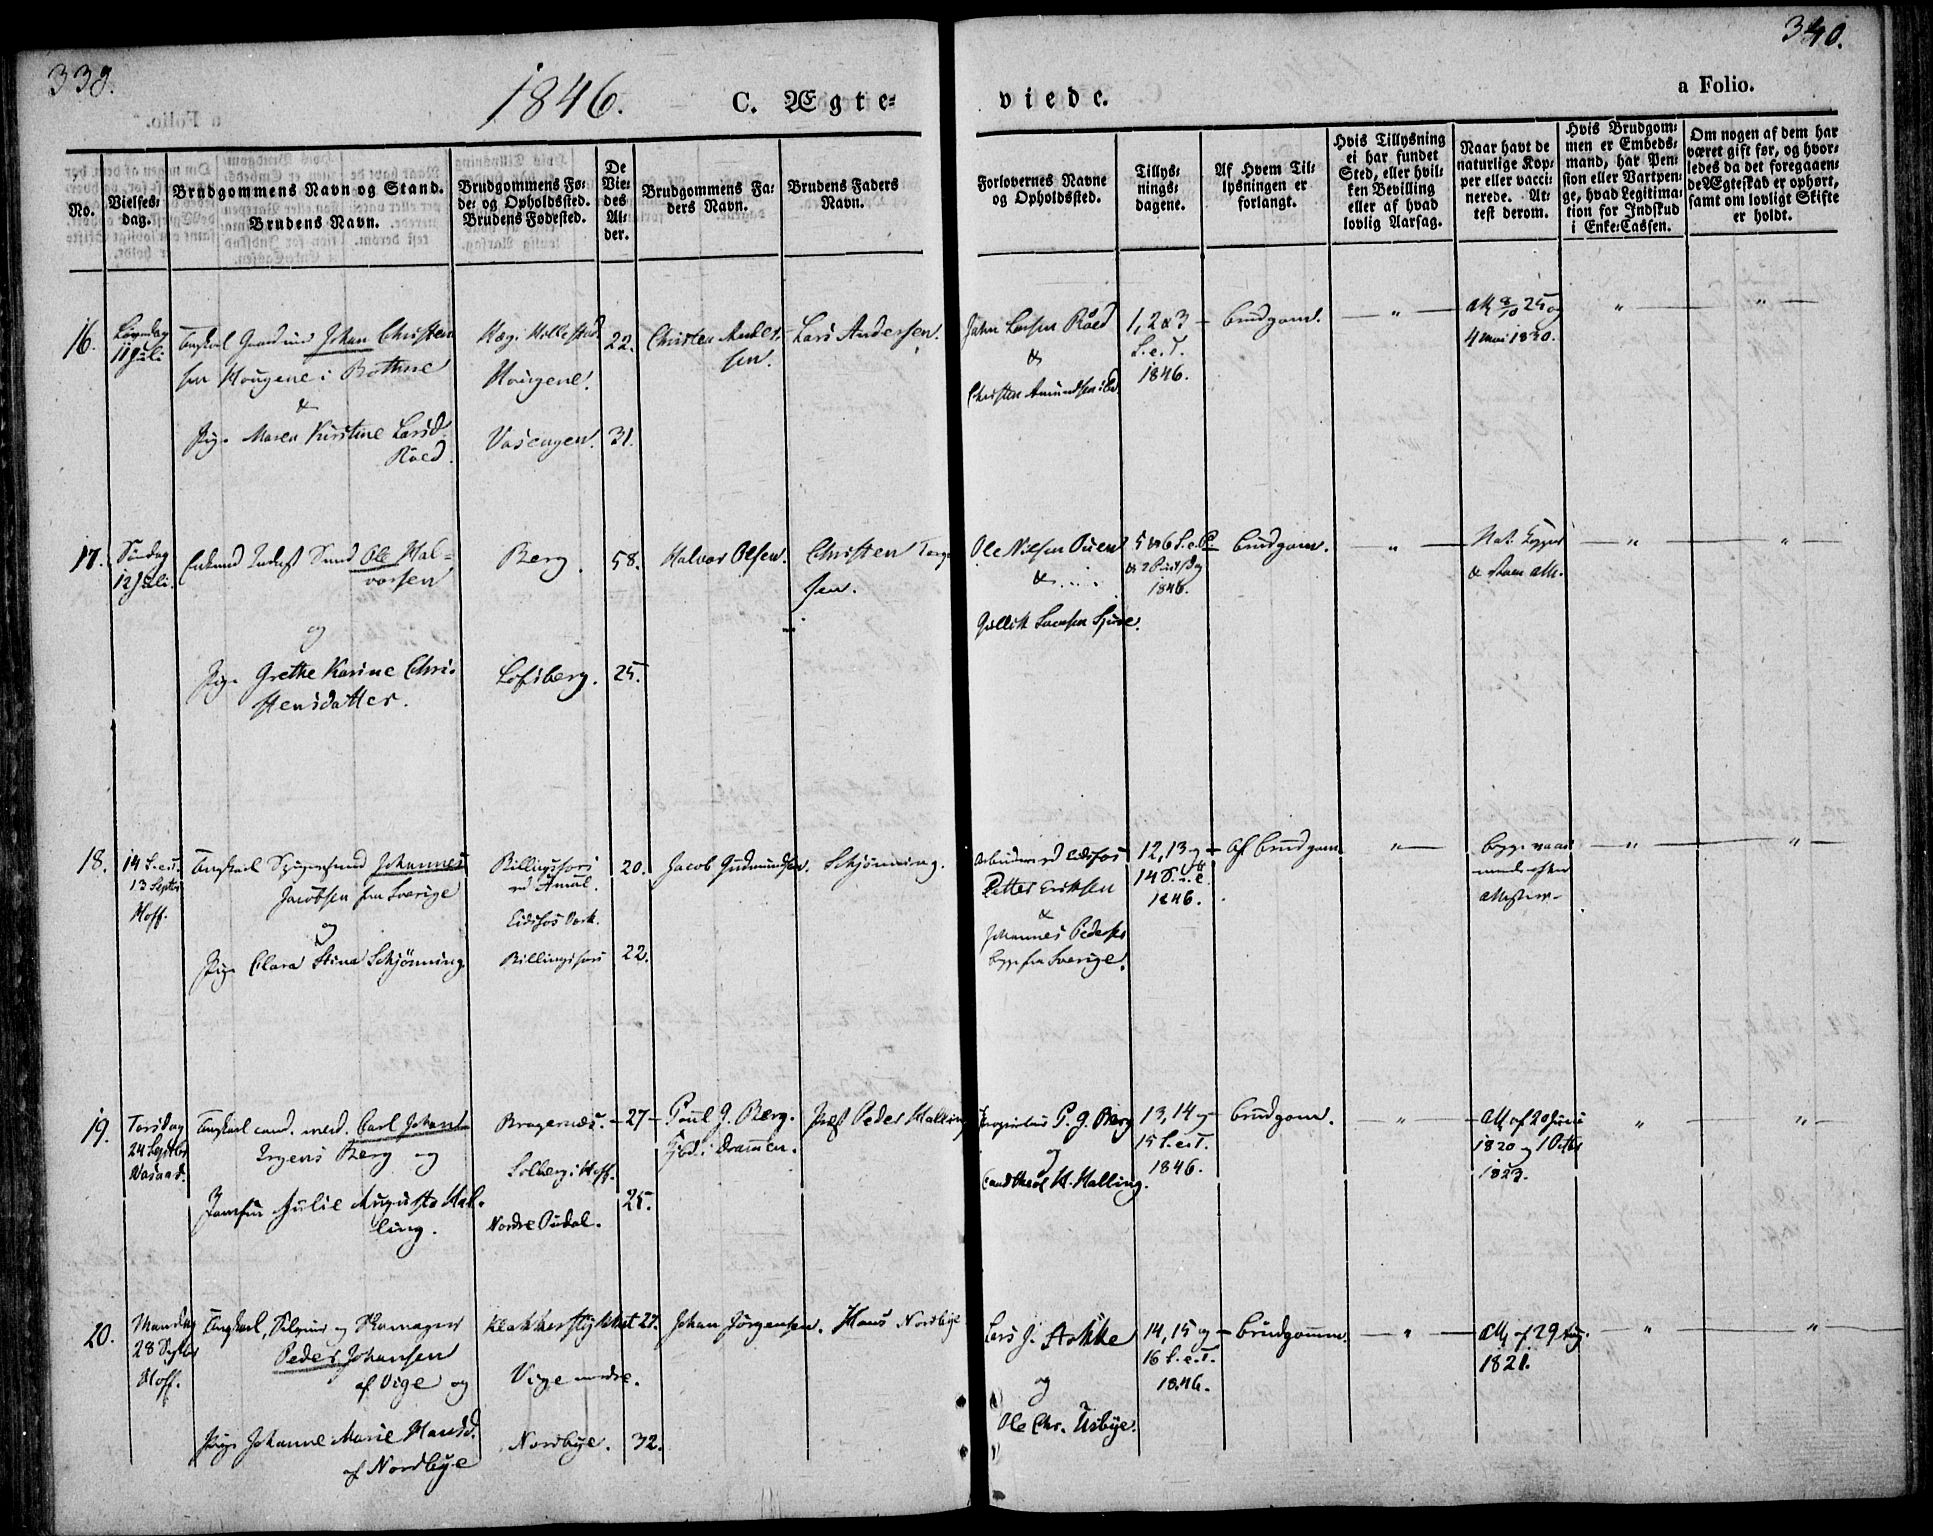 339.
1846.
C. Ægte-
viede.
a Folio.
340.
No.
Vielses-
dag.
Brudgommens Navn og Stand.
Brudens Navn.
Brudgommens Fø-
de- og Opholdssted.
Brudens Fødested.
De
Vie-
des
Al-
der.
Brudgommens Fa-
ders Navn.
Brudens Faders
Navn.
Forlovernes Navne
og Opholdssted.
Tillys-
nings-
dagene.
Af Hvem Til-
lysningen er
forlangt.
Hvis Tillysning
ei har fundet
Sted, eller hvil-
ken Bevilling
eller af hvad
lovlig Aarsag.
Naar havt de
naturlige Kop-
per eller vacci-
nerede. At-
test derom.
Hvis Brudgom-
men er Embeds-
mand, har Pen-
sion eller Vartpen-
ge, hvad Legitima-
tion for Indskud
i Enke-Cassen.
Om nogen af dem har
været gift før, og hvor-
ledes da det foregaaen-
de Ægteskab er ophørt,
samt om lovligt Skifte
er holdt.
16.
Løverdag
11 Juli
Ungkarl Gaardmd Johan Christen
sen Hougene i Bothne
&
Pige Maren Kirstine Larsd.
Røed.
Hougene.
Vasengen.
22.
31.
Christen Anders-
sen.
Lars Andersen.
John Larsen Røed
&
Christen Amundsen
1, 2 & 3
S. e. T.
1846.
brudgom.
Att 25 og
4 mai 1820.
17.
Søndag
12 Juli.
Enkemd Ole Hal-
vorsen
og
Pige Grethe Karine Chri-
stensdatter.
Berg.
Lofsberg.
58.
25.
Halvor Olsen.
Christen
sen.
Ole Nilsen
&
Gullik Svensen
5 & 6 S. e. P
1846.
brudgom.
Nat. Kopper
18.
14 S. e. T.
13 Septbr
Hoff.
Ungkarl Johannes
Jacobsen fra Sverige
og
Pige Clara Stina Schjønning.
Billingsfors
v Åmål.
Eidsfos Værk.
Billingsfors
20.
22.
Jacob Gudmundsen.
Schjønning.
Arbeidere v Eidsfos
Petter Eriksen
&
Johannes Peders
begge fra Sverige.
12, 13 og
14 S. e. T.
1846.
af brudgom
begge
19.
Torsdag
24 Septbr
Vasaas.
Ungkarl cand. med. Carl Johan
Irgens Berg og
Jomfru Julie Augusta Hal-
ling.
Bragernæs.
Solberg i Hoff.
Nordre Oudal.
27
25.
Poul J. Berg.
i Dramen.
Præst Peder Halling
Proprietær P. J. Berg
og
Cand theol H. Halling.
13, 14 og
15 S. e. T.
1846.
brudgom.
Att af 20 Juni
1820 og 1 Octbr
1823.
20.
Mandag
28 Septbr
Hoff.
Ungkarl, Selveier og Skomager
Peder Johansen
af Vige og
Pige Johanne Marie Hansd.
af Nordbye
Klakkerstykket
Vige nordre.
Nordbye.
27.
32.
Johan Jørgensen.
Hans Nordbye
Lars J. Stokke
og
Ole Chr. Usbye.
14, 15 og
16 S. e. T.
1846.
brudgommen.
Att af 29 Aug.
1821.